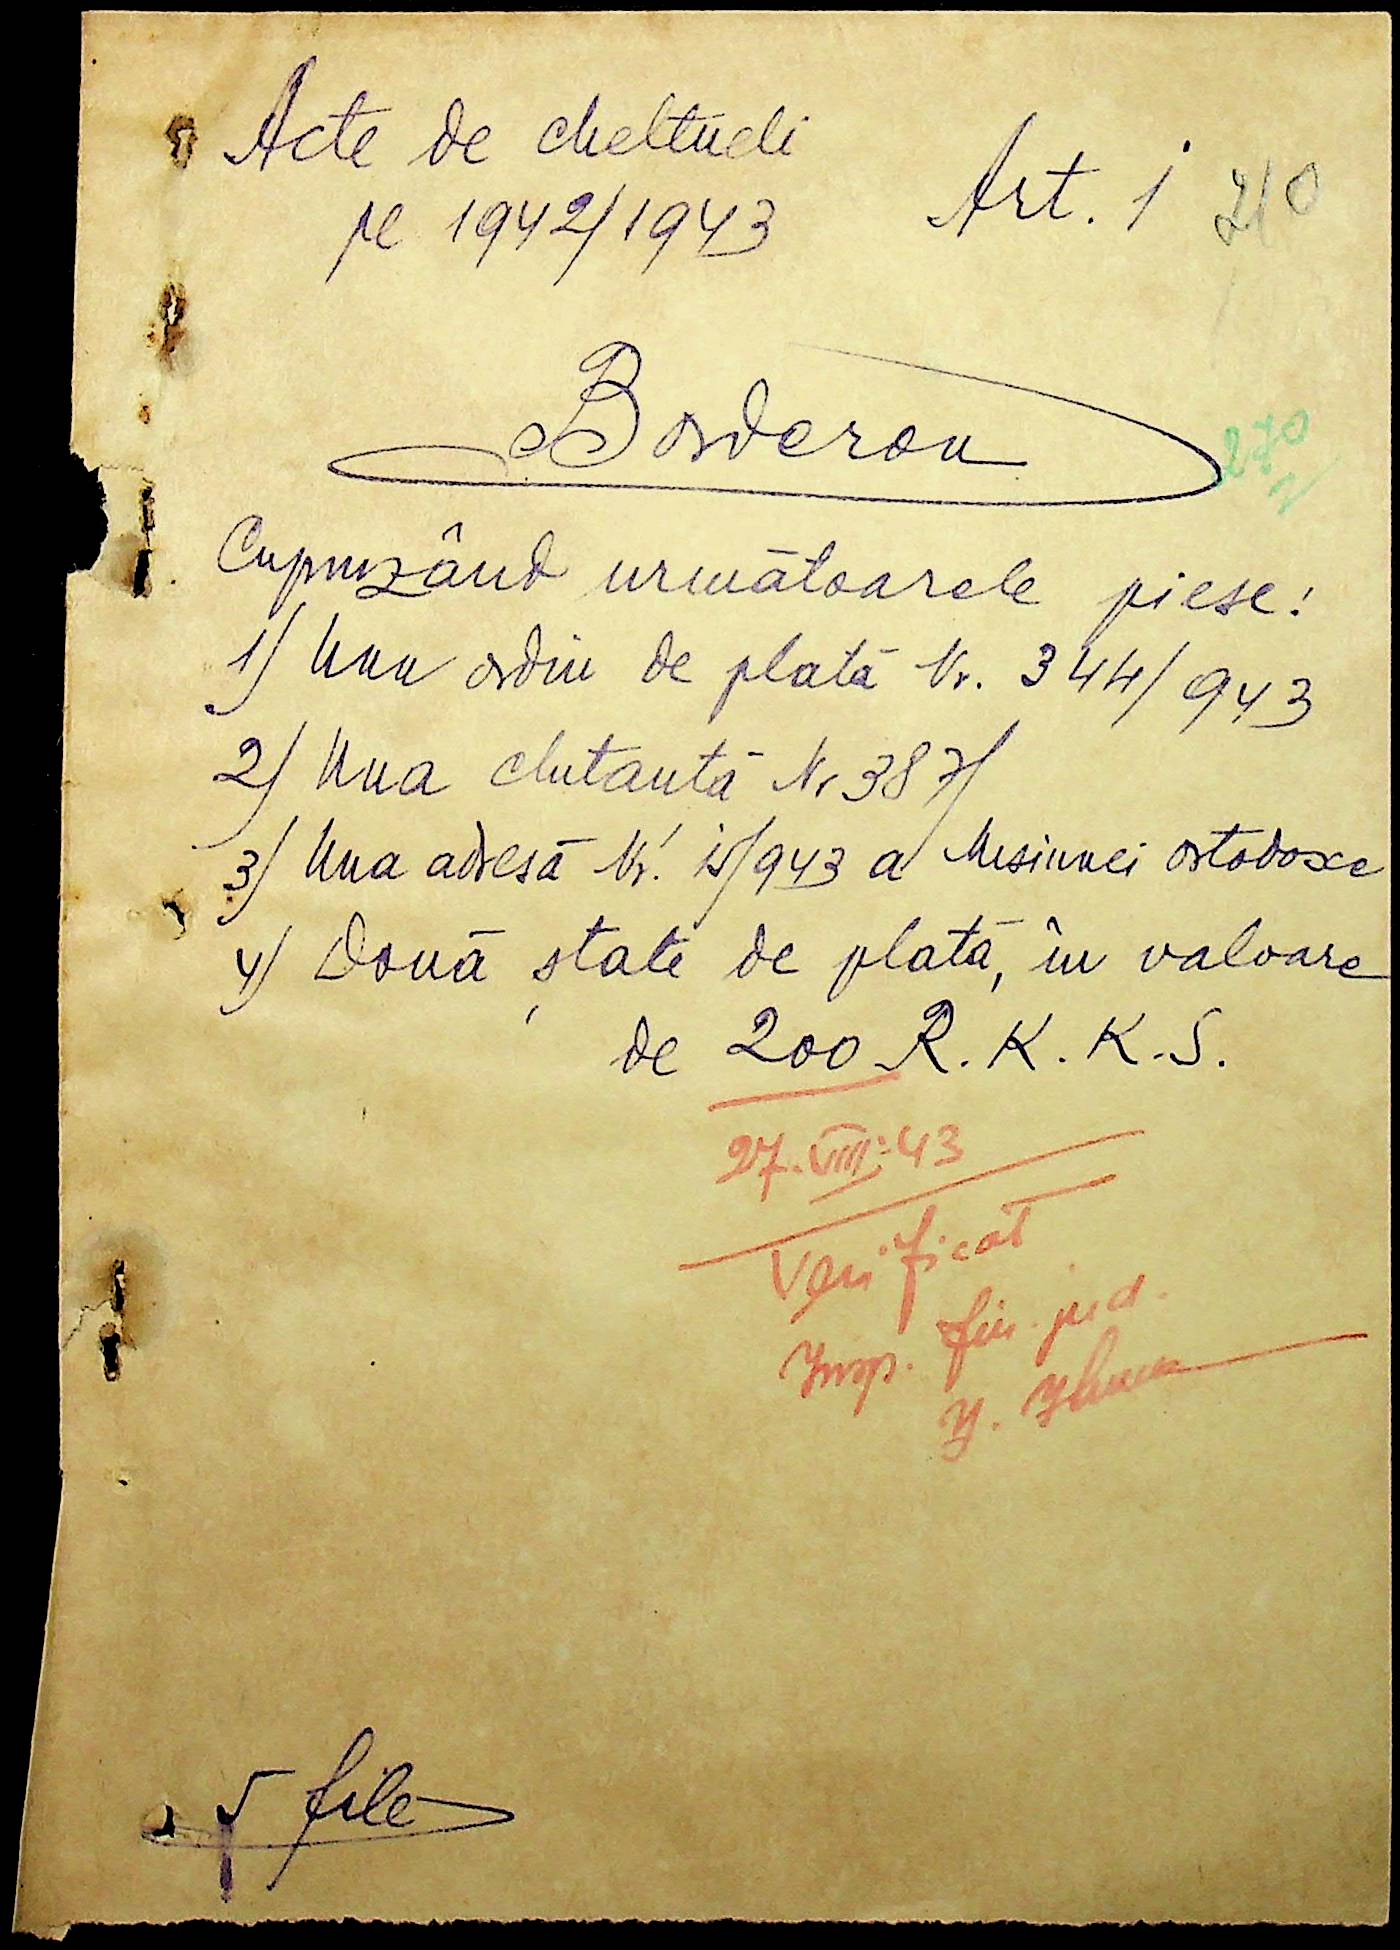 Acte de cheltueli
pe 1942/1943
Art. 1
210
Borderou
270
Cuprinzând următoarele piese:
1) Unu ordin de plată Nr. 344/943
2) Una chitantă Nr 387/
3) Una adresă Nr. 15/943 a Misiunei ortodoxe
4) Două state de plată, în valoare
de 200 R.K.K.S.
27.VIII.43
Verificat
Insp. fin. jud.
5 file